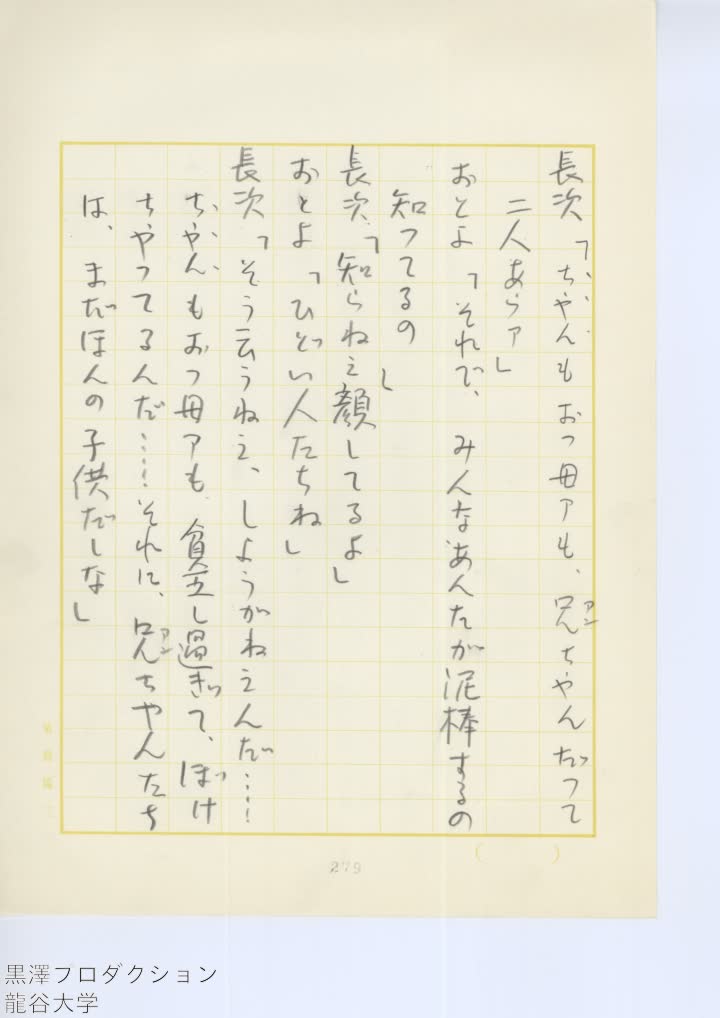 長次「ちゃんもおっ母アも、兄ちゃんだって
二人あらァ」
おとよ「それで、みんなあんたが泥棒するの
知ってるの」
長次「知らねえ顔してるよ」
おとよ「ひどい人たちね」
長次「そう云うねえ、しようがねえんだ……
ちゃんもおっ母アも、貧乏し過ぎて、ぼけ
ちゃってるんだ……それに、兄ちゃんたち
は、まだほんの子供だしな」
アン
アン
279
黒澤プロダクション
龍谷大学